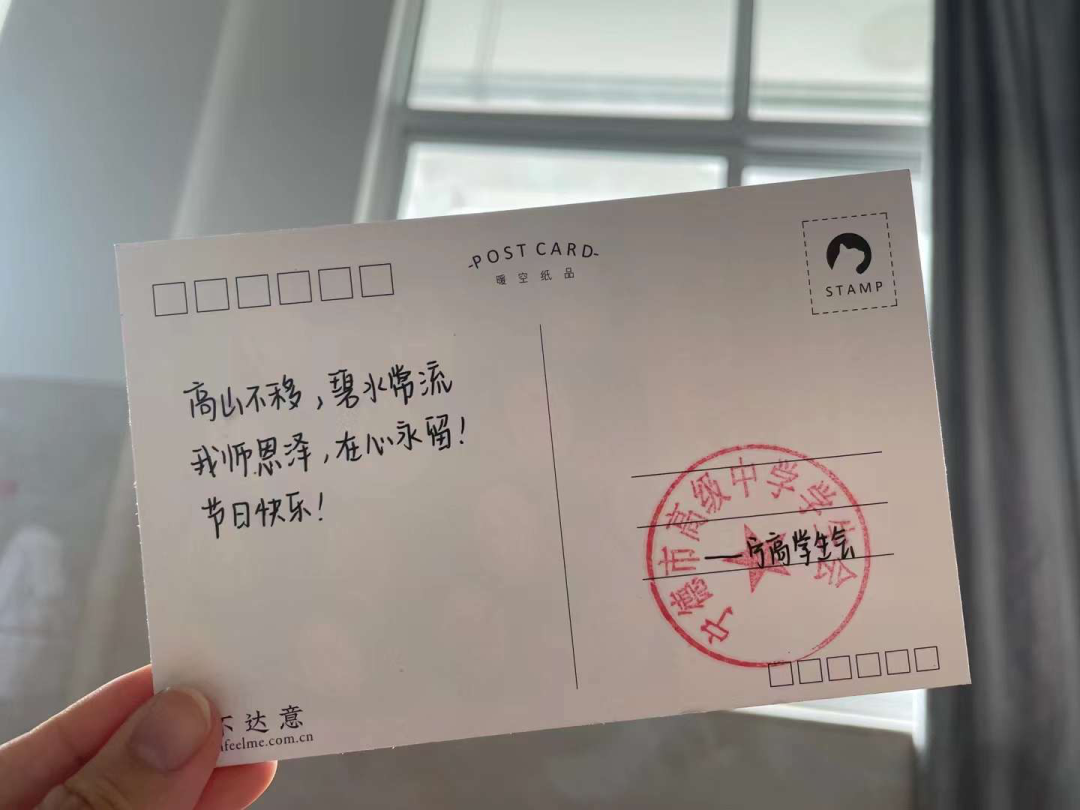 -POST CARD-
暖空纸品
STAMP
高山不移，碧水常流
我师恩泽，在心永留！
节日快乐！
宁德市高级中学学生会
——宁高学生会
不达意
feelme.com.cn